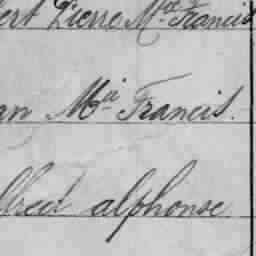 ert Pierre Mce Francis
an Mie Francis.
lfred alphonse